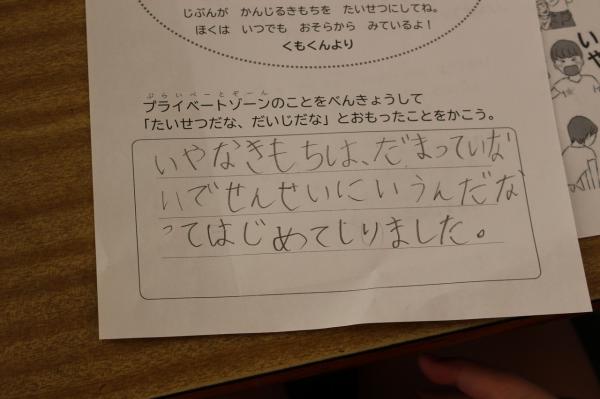 じぶんが かんじるきもちを たいせつにしてね。
ぼくは いつでも おそらから みているよ！
くもくんより
ぷらいべーとぞーん
プライベートゾーンのことをべんきょうして
「たいせつだな、だいじだな」とおもったことをかこう。
いやなきもちは、だまっていな
いでせんせいにいうんだな
ってはじめてしりました。
いや